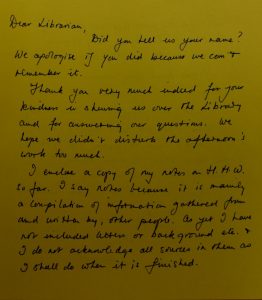 Dear Librarian,
Did you tell us your name?
We apologise if you did because we can't
remember it.
Thank you very much indeed for your
kindness in showing us over the Library
and for answering our questions. We
hope we didn't disturb the afternoon's
work too much.
I enclose a copy of my notes on H.H.W.
so far. I say notes because it is mainly
a compilation of information gathered from
and written by, other people. As yet I have
not included letters or background etc. &
I do not acknowledge all sources in them as
I shall do when it is finished.